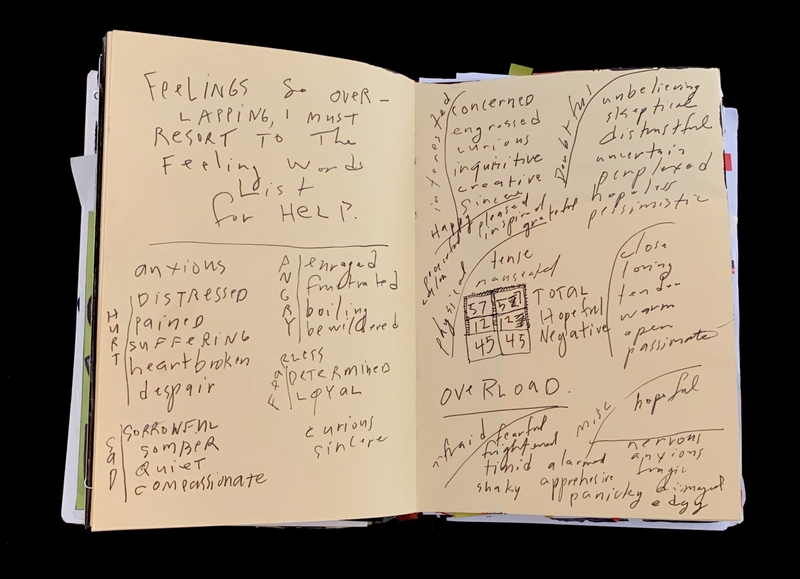 FEELINGS SO OVER-
LAPPING, I MUST
RESORT TO The
Feeling Words
List
for HELP.
anxious
HURT
DISTRESSED
pained
SUFFERING
heartbroken
despair
SAD
SORROWFUL
SOMBER
QUIET
COMPASSIONATE
ANGRY
enraged
frustrated
boiling
bewildered
RLESS
DETERMINED
LOYAL
curious
sincere
interested
concerned
engrossed
curious
inquisitive
creative
sincere
Happy
pleased
inspired
grateful
calm
Doubtful
unbelieving
skeptical
distrustful
uncertain
perplexed
hopeless
pessimistic
physical
tense
nauseated
57 57 TOTAL
12 12 Hopeful
45 45 Negative
close
loving
tender
warm
open
passionate
OVERLOAD.
afraid
fearful
frightened
timid
shaky
alarmed
apprehesive
panicky
misc
hopeful
nervous
anxious
dismayed
edgy